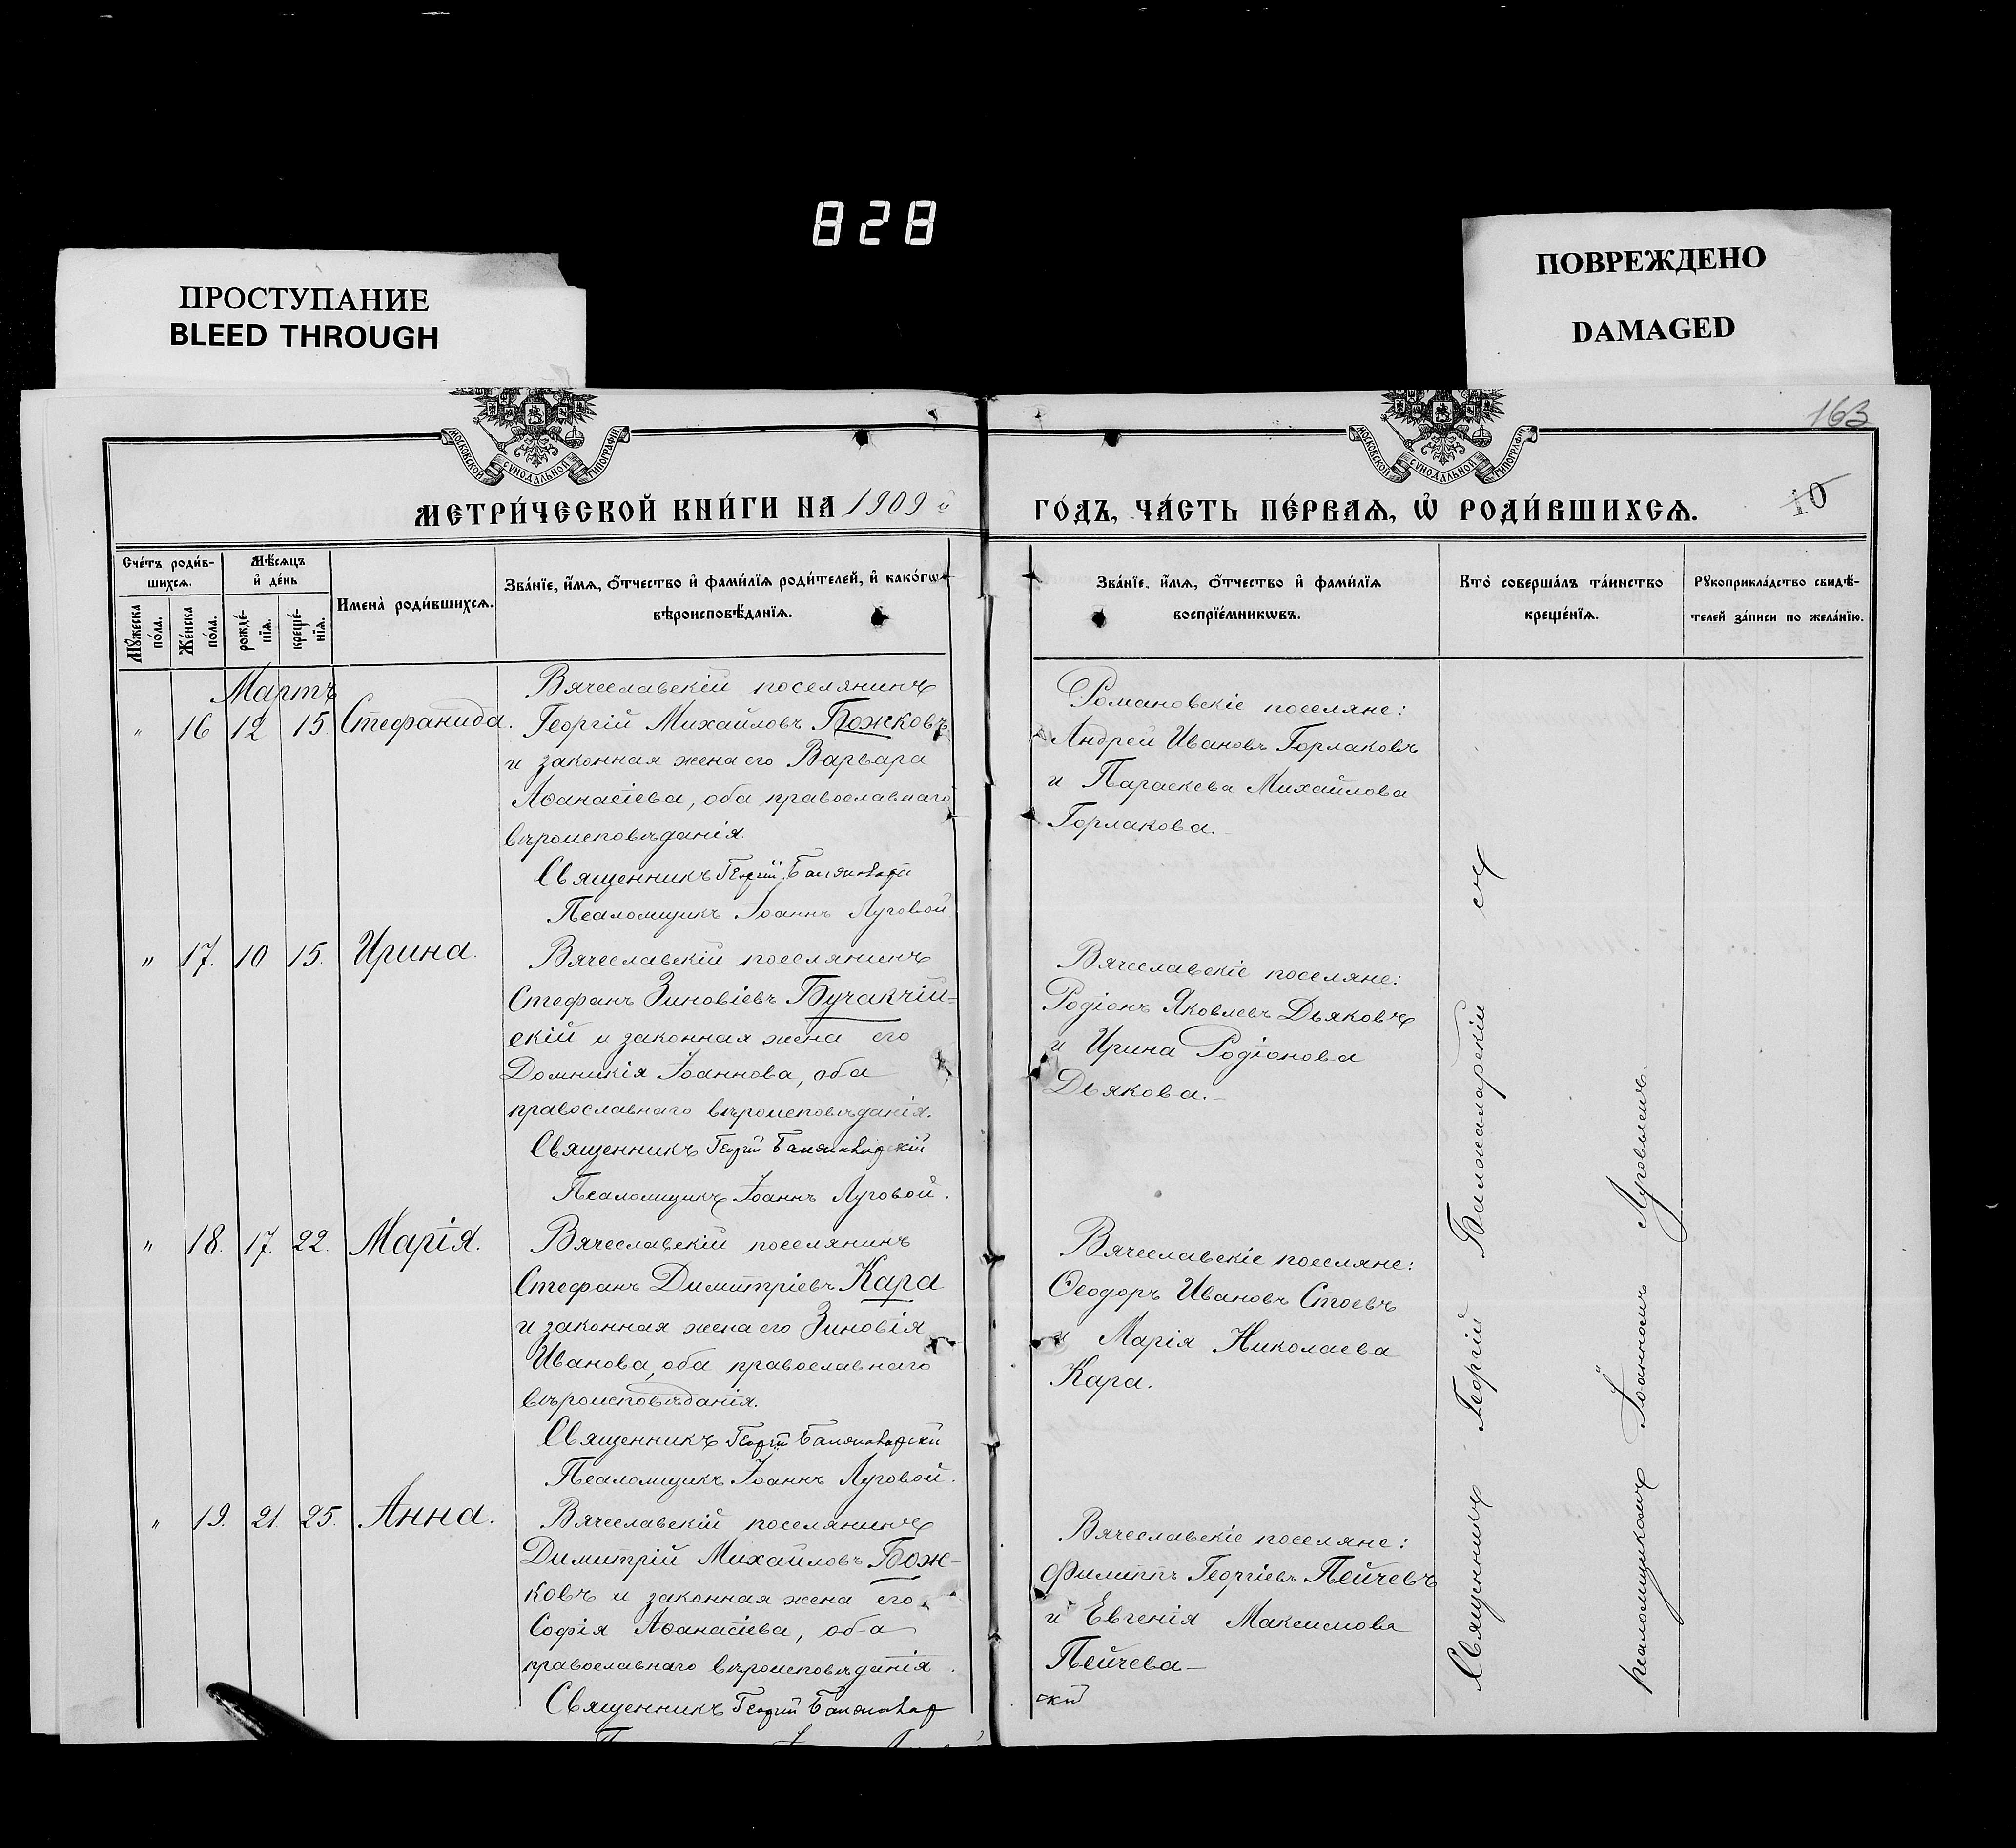 828
ПРОСТУПАНИЕ
BLEED THROUGH
ПОВРЕЖДЕНО
DAMAGED
163
МОСКОВСКОЙ СѴНОДАЛЬНОЙ ТИПОГРАФІИ
МОСКОВСКОЙ СѴНОДАЛЬНОЙ ТИПОГРАФІИ
МЕТРИ́ЧЕСКОЙ КНИ́ГИ НА 1909 й
ГО́ДЪ, ЧА́СТЬ ПЕ́РВАѦ, Ѡ҆ РОДИ́ВШИХСѦ.
10
Сче́тъ роди́в-
шихсѧ.
Мѣ́сѧцъ
и҆ де́нь
Мꙋ́жеска
по́ла.
Же́нска
по́ла.
рожде́-
нїѧ.
креще́-
нїѧ.
Имена̀ роди́вшихсѧ.
Зва́нїе, и҆́мѧ, ѻ҆́тчество и҆ фами́лїѧ роди́телей, и҆ како́гѡ
вѣроисповѣ́данїѧ.
Зва́нїе, и҆́мѧ, ѻ҆́тчество и҆ фами́лїѧ
воспрїе́мникѡвъ.
Кто̀ соверша́лъ та́инство
креще́нїѧ.
Рꙋкоприкла́дство свидѣ́-
телей за́писи по жела́нїю.
Мартъ
" 16 12 15 Стефанида.
Вячеславскій поселянинъ
Георгій Михайловъ Божковъ
и законная жена его Варвара
Аѳанасіева, оба православнаго
вѣроисповѣданія.
Священникъ Георгій
Псаломщикъ Іоаннъ Луговой
Романовскіе поселяне:
Андрей Ивановъ Горлаковъ
и Параскева Михайлова
Горлакова.
" 17. 10 15. Ирина.
Вячеславскій поселянинъ
Стефанъ Зиновіевъ Бучакчій-
скій и законная жена его
Домникія Іоаннова, оба
православнаго вѣроисповѣданія.
Священникъ Георгій
Псаломщикъ Іоаннъ Луговой.
Вячеславскіе поселяне:
Родіонъ Яковлевъ Дьяковъ
и Ирина Родіонова
Дьякова.
" 18. 17. 22. Марія.
Вячеславскій поселянинъ
Стефанъ Димитріевъ Кара
и законная жена его Зиновія
Иванова, оба православнаго
вѣроисповѣданія.
Священникъ Георгій
Псаломщикъ Іоаннъ Луговой.
Вячеславскіе поселяне:
Ѳеодоръ Ивановъ Стоевъ
и Марія Николаева
Кара.
" 19. 21. 25. Анна.
Вячеславскій поселянинъ
Димитрій Михайловъ Бож-
ковъ и законная жена его
Софія Аѳанасіева, оба
православнаго вѣроисповѣданія.
Священникъ Георгій
Вячеславскіе поселяне:
Филиппъ Георгіевъ Пейчевъ
и Евгенія Максимова
Пейчева
скій
Священникъ Георгій съ
псаломщикомъ Іоанномъ Луговымъ.